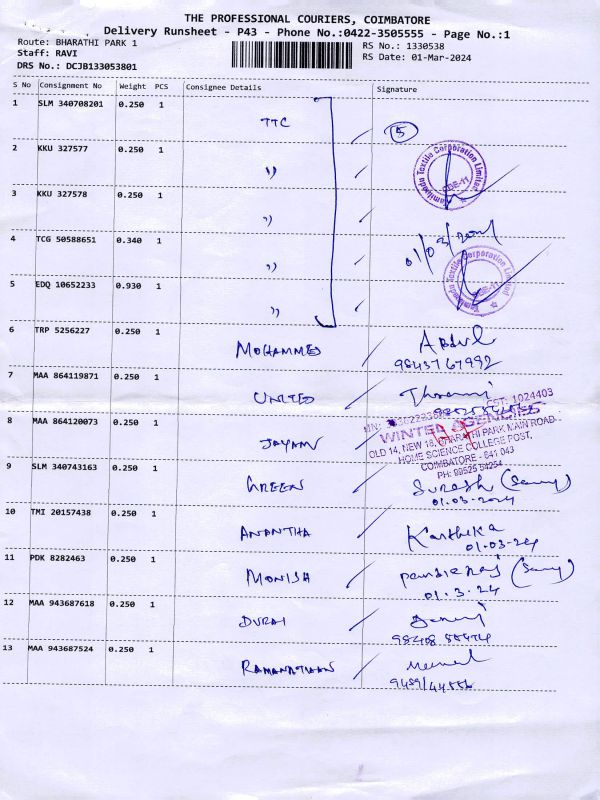 THE PROFESSIONAL COURIERS, COIMBATORE
Delivery Runsheet - P43 - Phone No.:0422-3505555 - Page No.:1
Route: BHARATHI PARK 1
RS No.: 1330538
Staff: RAVI
RS Date: 01-Mar-2024
DRS No.: DCJB133053801
S No Consignment No Weight PCS Consignee Details Signature
1 SLM 340708201 0.250 1 TTC 5
2 KKU 327577 0.250 1 "
Tamilnadu Textile Corporation Limited
CBE-11
3 KKU 327578 0.250 1 "
4 TCG 50588651 0.340 1 " 01/03/2024
Tamilnadu Textile Corporation Limited
CBE-11
5 EDQ 10652233 0.930 1 "
6 TRP 5256227 0.250 1 MOHAMMED Abdul
9843767992
7 MAA 864119871 0.250 1 UNITED
CST: 1024403
8 MAA 864120073 0.250 1 JAYAM
WINTER AGENCIES
OLD 14, NEW 18, BHARATHI PARK MAIN ROAD
HOME SCIENCE COLLEGE POST,
COIMBATORE - 641 043
PH: 99525 54254
9 SLM 340743163 0.250 1 GREEN Suresh
01.03.2024
10 TMI 20157438 0.250 1 ANANTHA Karthika
01.03.24
11 PDK 8282463 0.250 1 MONISH
01.3.24
12 MAA 943687618 0.250 1 DURAI
13 MAA 943687524 0.250 1 RAMANATHAN